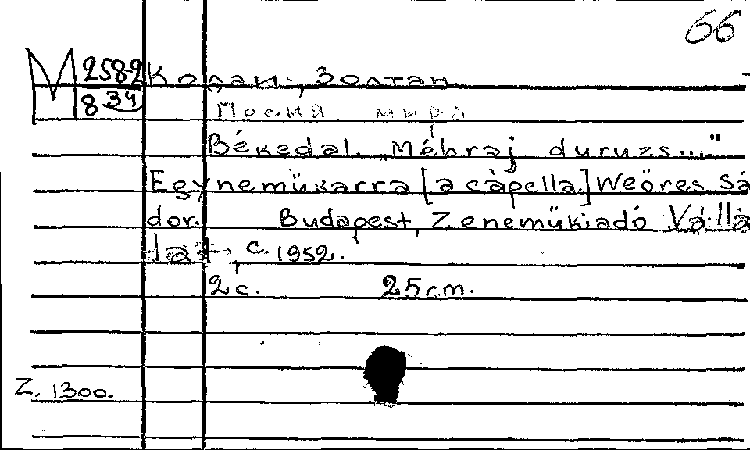 66
M 2582
834
Кодаи, Золтан.
Песня мира
Békedal. „Méhraj duruzs..."
Egyneműkarra [a capella.] Weöres Sá
dor. Budapest, Zeneműkiadó Válla
lat, c. 1952.
2 c. 25 cm.
Z. 1300.